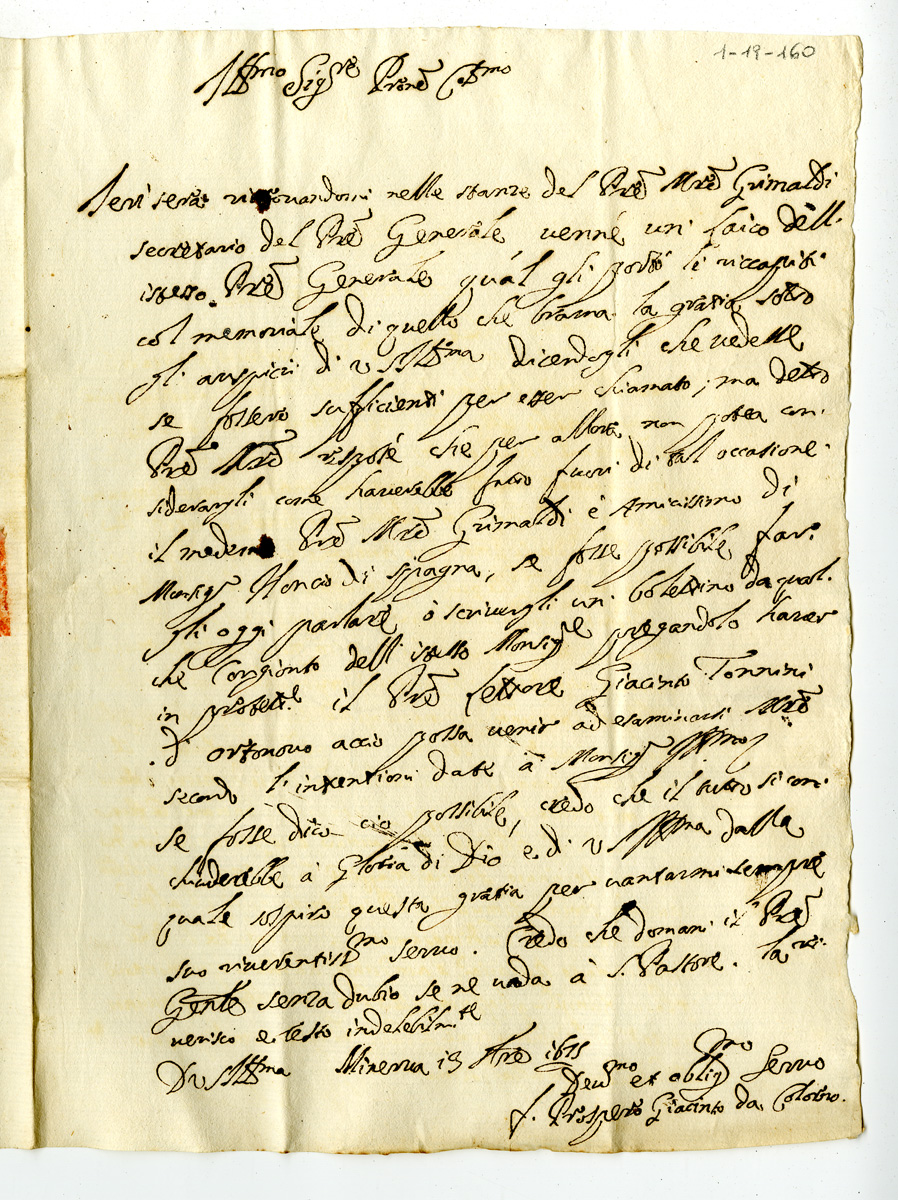 1-19-160
Ill.mo Sig.re Prone Col.mo
Ieri sera ritrovandomi nelle stanze del Pre Mro Grimaldi
secretario del Pre Generale venne un laico dell'
istesso Pre Generale qual gli portò li
col memoriale di quello che brama la gratia sotto
gli auspicii di V S Ill.ma dicendogli che vedesse
se fossero sufficienti per esser chiamato; ma detto
Pre Mro rispose che per allora non potea con
siderargli come haverebbe fatto fuori di tal occasione.
il medemo Pre Mro Grimaldi è Amicissimo di
Monsig.r Noncio di Spagna, se fosse possibile far
gli oggi parlare ò scrivergli un bolettino da qual
che Congionto dell' istesso Monsig.re pregandolo haver
in protett.e il Pre Lettore Giacinto Tonnini
di Ortonovo acciò possa venir ad esaminarsi Mro
secondo l'intentioni date à Monsig.r Ill.mo
se fosse dico ciò possibile, credo che il tutto si con
chiuderebbe à Gloria di Dio e di V S Ill.ma dalla
quale sospiro questa gratia per vantarmi sempre
suo riverentiss.mo servo. Credo che domani il Pre
Gen.le senza dubio se ne vada à S. Pastore. la ri
verisco e resto indelebilm.te
D V S Ill.ma Minerva 13 1675
Dev.mo et oblig.mo Servo
f. Prospero Giacinto da